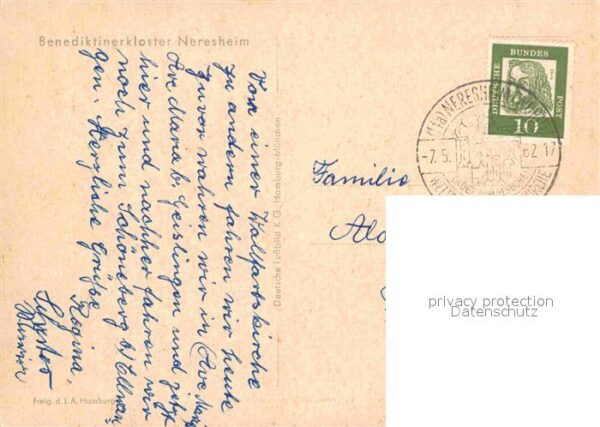 Benediktinerkloster Neresheim
Von einer Wallfartskirche
zu andern fahren wir heute
zuvor wahren wir in Ave Maria
Ave Maria b. Geislingen und jetzt
hier und nachher fahren wir
noch zum Schöneberg b/ Ellwan-
gen. Herzliche Grüße
Regina,
Schwester
Deutsche Luftbild K.G., Hamburg-München
Freig. d. L.A. Hamburg
DEUTSCHE
BUNDES
POST
10
(14a) NERESHEIM
-7.5. 62-17
Familie
Alo
privacy protection
Datenschutz